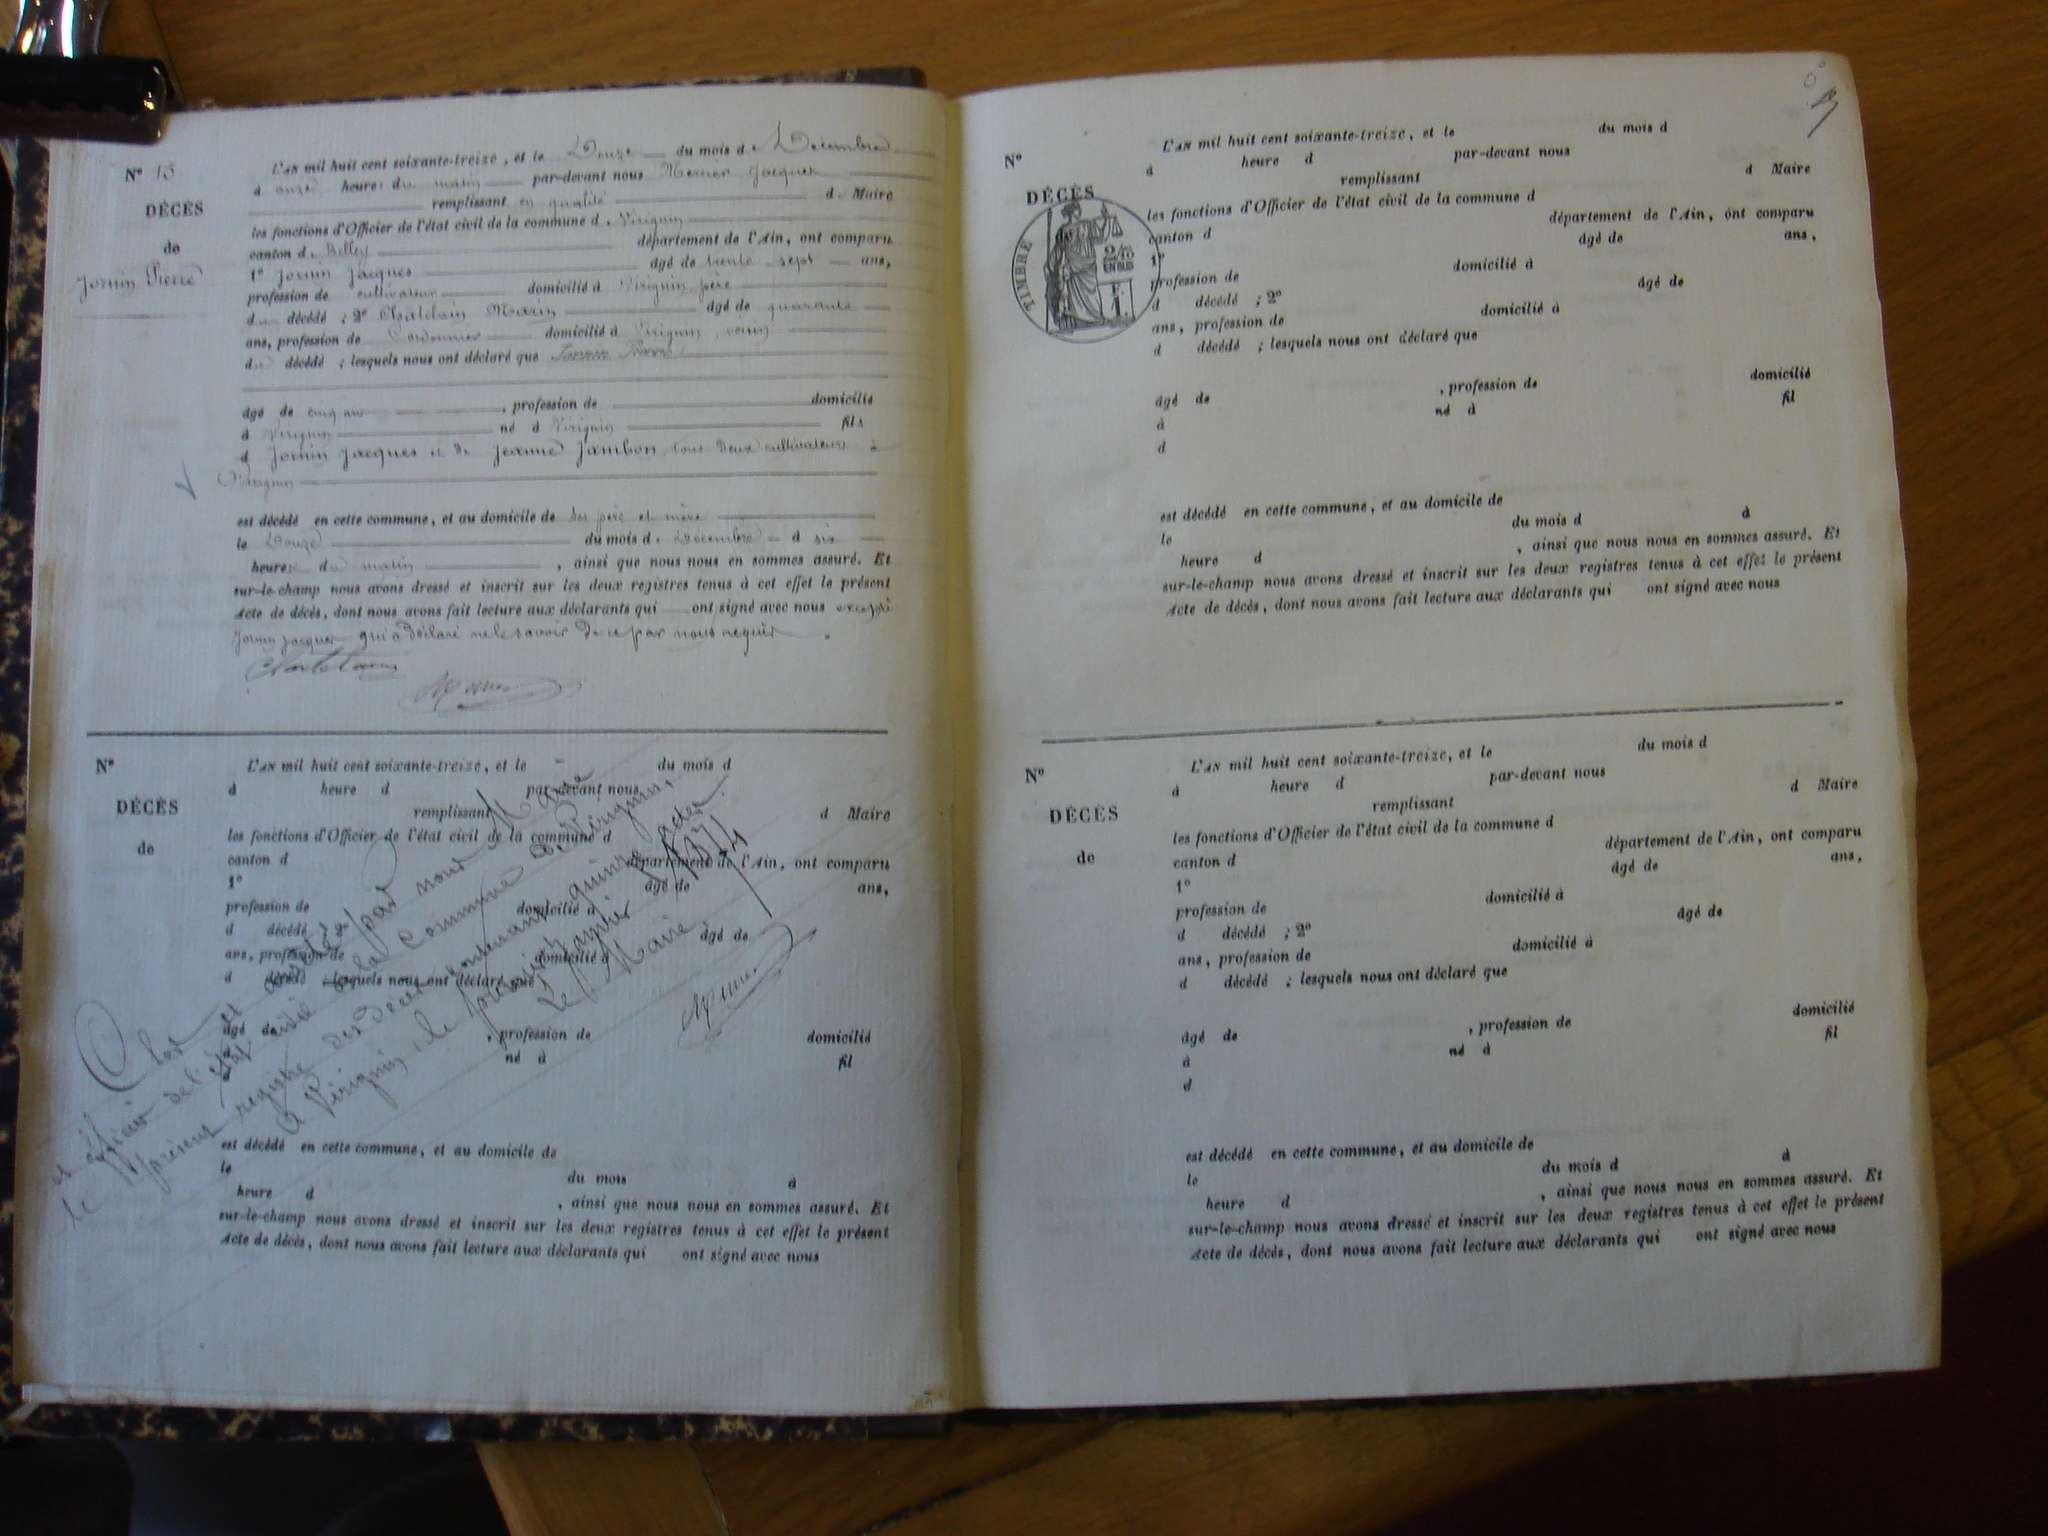 N° 15
DÉCÈS
de
Jornin Pierre
L'AN mil huit cent soixante-treize, et le Douze du mois de Décembre
à onze heures du matin par-devant nous Mercier Jacques
remplissant en qualité de Maire
les fonctions d'Officier de l'état civil de la commune de Virignin
canton de Belley département de l'Ain, ont comparu
1° Jornin Jacques âgé de trente sept ans,
profession de cultivateur domicilié à Virignin père
du décédé ; 2° Chatelain Marin âgé de quarante
ans, profession de Cordonnier domicilié à Virignin, voisin
du décédé ; lesquels nous ont déclaré que Jornin Pierre
âgé de cinq ans , profession de domicilié
à Virignin né à Virignin fils
d Jornin Jacques et de Jeanne Jambon tous deux cultivateurs à
Virignin
est décédé en cette commune, et au domicile de ses père et mère
le Douze du mois de Décembre à six
heures du matin , ainsi que nous nous en sommes assuré. Et
sur-le-champ nous avons dressé et inscrit sur les deux registres tenus à cet effet le présent
Acte de décès, dont nous avons fait lecture aux déclarants qui ont signé avec nous excepté
Jornin Jacques qui a déclaré ne le savoir de ce par nous requis.
Chatelain
N°
DÉCÈS
de
L'AN mil huit cent soixante-treize, et le du mois d
à heure d par-devant nous
remplissant d Maire
les fonctions d'Officier de l'état civil de la commune d
canton d département de l'Ain, ont comparu
1° âgé de ans,
profession de domicilié à
d décédé ; 2° âgé de
ans, profession de domicilié à
d décédé ; lesquels nous ont déclaré que
âgé de , profession de domicilié
à né à fil
d
est décédé en cette commune, et au domicile de
le du mois à
heure d , ainsi que nous nous en sommes assuré. Et
sur-le-champ nous avons dressé et inscrit sur les deux registres tenus à cet effet le présent
Acte de décès, dont nous avons fait lecture aux déclarants qui ont signé avec nous
Clos et arrêté par nous Maire
et officier de l'état civil de la Commune de Virignin,
le présent registre des décès contenant quinze actes.
A Virignin, le premier Janvier 1874
Le Maire
N°
DÉCÈS
TIMBRE
2/10
EN SUS
L'AN mil huit cent soixante-treize, et le du mois d
à heure d par-devant nous
remplissant d Maire
les fonctions d'Officier de l'état civil de la commune d
canton d département de l'Ain, ont comparu
1° âgé de ans,
profession de domicilié à
d décédé ; 2° âgé de
ans, profession de domicilié à
d décédé ; lesquels nous ont déclaré que
âgé de , profession de domicilié
à né à fil
d
est décédé en cette commune, et au domicile de
le du mois d à
heure d , ainsi que nous nous en sommes assuré. Et
sur-le-champ nous avons dressé et inscrit sur les deux registres tenus à cet effet le présent
Acte de décès, dont nous avons fait lecture aux déclarants qui ont signé avec nous
N°
DÉCÈS
de
L'AN mil huit cent soixante-treize, et le du mois d
à heure d par-devant nous
remplissant d Maire
les fonctions d'Officier de l'état civil de la commune d
canton d département de l'Ain, ont comparu
1° âgé de ans,
profession de domicilié à
d décédé ; 2° âgé de
ans, profession de domicilié à
d décédé ; lesquels nous ont déclaré que
âgé de , profession de domicilié
à né à fil
d
est décédé en cette commune, et au domicile de
le du mois d à
heure d , ainsi que nous nous en sommes assuré. Et
sur-le-champ nous avons dressé et inscrit sur les deux registres tenus à cet effet le présent
Acte de décès, dont nous avons fait lecture aux déclarants qui ont signé avec nous